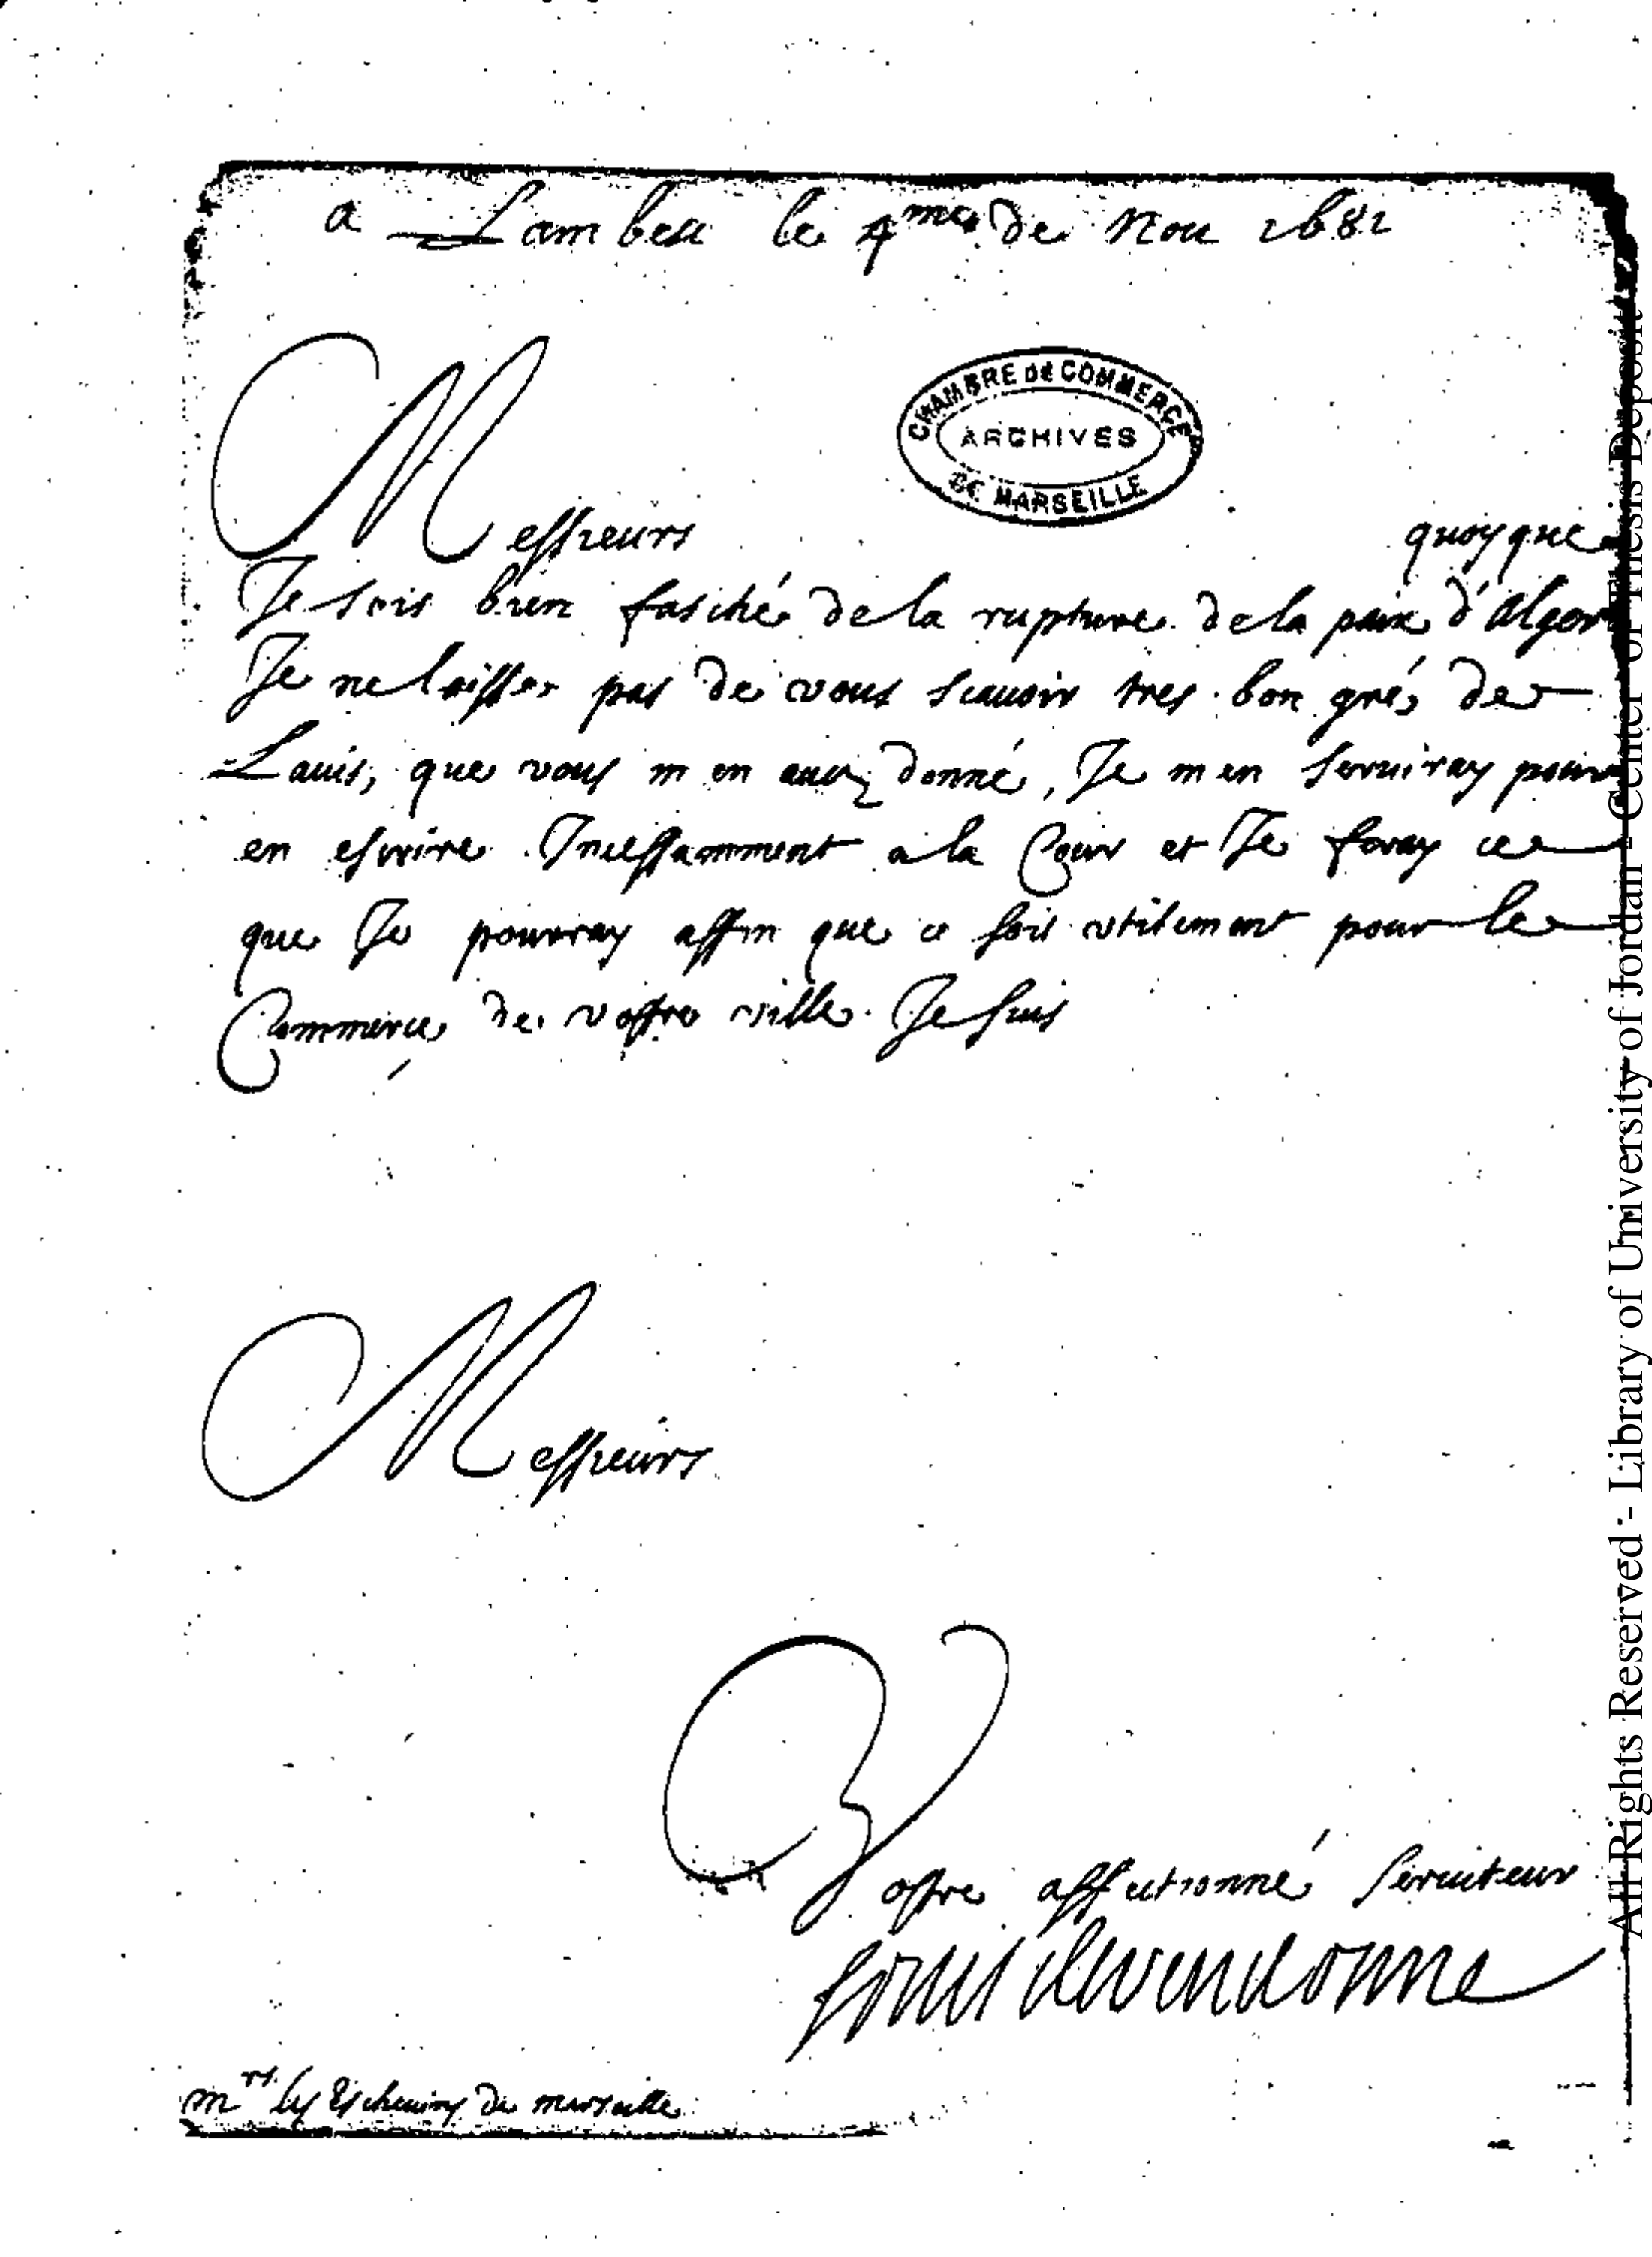 a Lambesc le 4me de Nou 1681
CHAMBRE DE COMMERCE
ARCHIVES
DE MARSEILLE
Messieurs quoyque
Je sois bien fasché de la rupture de la paix d'alger
Je ne laisse pas de vous scauoir tres bon gré de
Lauis, que vous m en auez donné, Je men seruiray pour
en escrire Incessamment a la Cour et Je feray ce
que Je pourray affin que ce soit vtilement pour le
Commerce de vostre ville. Je suis
Messieurs
Vostre affectionné seruiteur
Louis de vendosme
mrs les Escheuins de marseille
All Rights Reserved - Library of University of Jordan - Center of Thesis Deposit